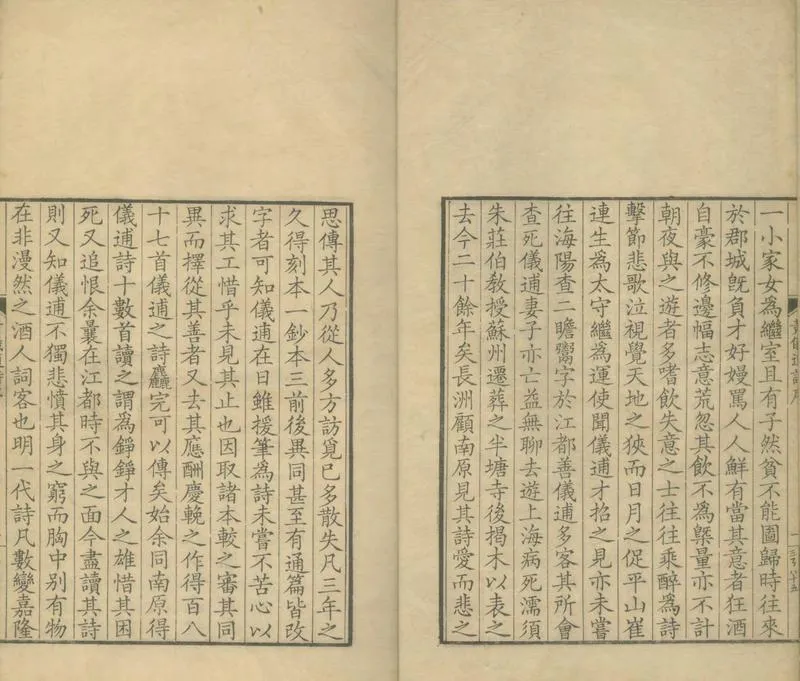 一小家女為繼室且有子然貧不能圖歸時往來
於郡城旣負才好嫚罵人人鮮有當其意者狂酒
自豪不修邊幅志意荒忽其飲不為槩量亦不計
朝夜與之遊者多嗜飲失意之士往往乘醉為詩
擊節悲歌泣視覺天地之狹而日月之促平山崔
連生為太守繼為運使聞儀逋才招之見亦未嘗
往海陽查二瞻鬻字於江都善儀逋多客其所會
查死儀逋妻子亦亡益無聊去遊上海病死濡須
朱莊伯敎授蘇州遷葬之半塘寺後揭木以表之
去今二十餘年矣長洲顧南原見其詩愛而悲之
思傳其人乃從人多方訪覓已多散失凡三年之
久得刻本一鈔本三前後異同甚至有通篇皆改
字者可知儀逋在日雖援筆為詩未嘗不苦心以
求其工惜乎未見其止也因取諸本較之審其同
異而擇從其善者又去其應酬慶輓之作得百八
十七首儀逋之詩麤完可以傳矣始余同南原得
儀逋詩十數首讀之謂為錚錚才人之雄惜其困
死又追恨余曩在江都時不與之面今盡讀其詩
則又知儀逋不獨悲憤其身之窮而胸中别有物
在非漫然之酒人詞客也明一代詩凡數變嘉隆